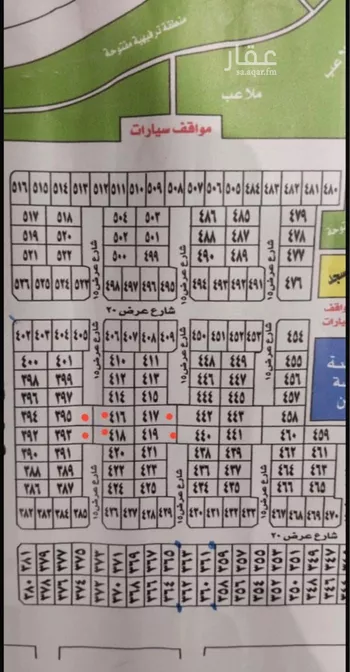 منطقة ترفيهية مفتوحة
عقار
sa.aqar.fm
ملاعب
مواقف سيارات
٥١٦ ٥١٥ ٥١٤ ٥١٣ ٥١٢ ٥١١ ٥١٠ ٥٠٩ ٥٠٨ ٥٠٧ ٥٠٦ ٥٠٥ ٤٨٤ ٤٨٣ ٤٨٢ ٤٨١ ٤٨٠
٥١٧ ٥١٨ ٥٠٤ ٥٠٣ ٤٨٦ ٤٨٥ ٤٧٩
٥١٩ ٥٢٠ ٥٠٢ ٥٠١ ٤٨٨ ٤٨٧ ٤٧٨
٥٢١ ٥٢٢ ٥٠٠ ٤٩٩ ٤٩٠ ٤٨٩ ٤٧٧
شارع عرض ١٥
شارع عرض ١٥
٥٢٦ ٥٢٥ ٥٢٤ ٥٢٣ ٤٩٨ ٤٩٧ ٤٩٦ ٤٩٥ ٤٩٤ ٤٩٣ ٤٩٢ ٤٩١ ٤٧٦
شارع عرض ٢٠
مواقف
سيارات
٤٠٢ ٤٠٣ ٤٠٤ ٤٠٥ ٤٠٦ ٤٠٧ ٤٠٨ ٤٠٩ ٤٥٠ ٤٥١ ٤٥٢ ٤٥٣ ٤٥٤
٤٠٠ ٤٠١ ٤١٠ ٤١١ ٤٤٨ ٤٤٩ ٤٥٥
٣٩٨ ٣٩٩ ٤١٢ ٤١٣ ٤٤٦ ٤٤٧ ٤٥٦
٣٩٦ ٣٩٧ ٤١٤ ٤١٥ ٤٤٤ ٤٤٥ ٤٥٧
٣٩٤ ٣٩٥ ٤١٦ ٤١٧ ٤٤٢ ٤٤٣ ٤٥٨
٣٩٢ ٣٩٣ ٤١٨ ٤١٩ ٤٤٠ ٤٤١ ٤٦٠ ٤٥٩
٣٩٠ ٣٩١ ٤٢٠ ٤٢١ ٤٣٨ ٤٣٩ ٤٦٢ ٤٦١
٣٨٨ ٣٨٩ ٤٢٢ ٤٢٣ ٤٣٦ ٤٣٧ ٤٦٤ ٤٦٣
٣٨٦ ٣٨٧ ٤٢٤ ٤٢٥ ٤٣٤ ٤٣٥ ٤٦٦ ٤٦٥
شارع عرض ١٥
شارع عرض ١٥
٣٨٢ ٣٨٣ ٣٨٤ ٣٨٥ ٤٢٦ ٤٢٧ ٤٢٨ ٤٢٩ ٤٣٠ ٤٣١ ٤٣٢ ٤٣٣ ٤٦٧ ٤٦٨ ٤٦٩ ٤٧٠
شارع عرض ٢٠
٣٨١ ٣٧٩ ٣٧٧ ٣٧٥ ٣٧٣ ٣٧١ ٣٦٩ ٣٦٧ ٣٦٥ ٣٦٣ ٣٦١ ٣٥٩ ٣٥٧ ٣٥٥ ٣٥٣ ٣٥١ ٣٤٩ ٣٤٧
٣٨٠ ٣٧٨ ٣٧٦ ٣٧٤ ٣٧٢ ٣٧٠ ٣٦٨ ٣٦٦ ٣٦٤ ٣٦٢ ٣٦٠ ٣٥٨ ٣٥٦ ٣٥٤ ٣٥٢ ٣٥٠ ٣٤٨ ٣٤٦